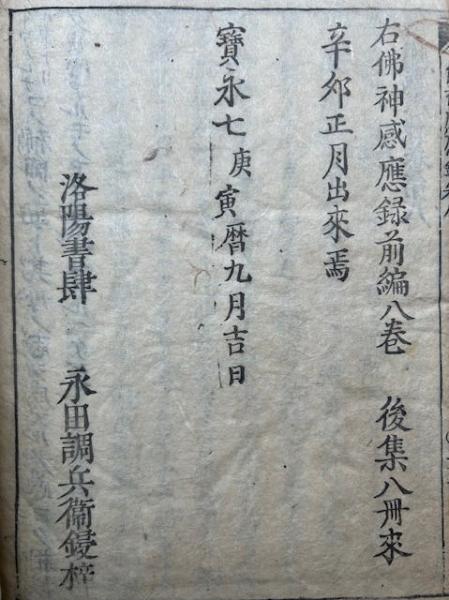 右佛神感應録前編八巻 後集八冊來
辛夘正月出來焉
寳永七庚寅暦九月吉日
洛陽書肆 永田調兵衞鋟梓